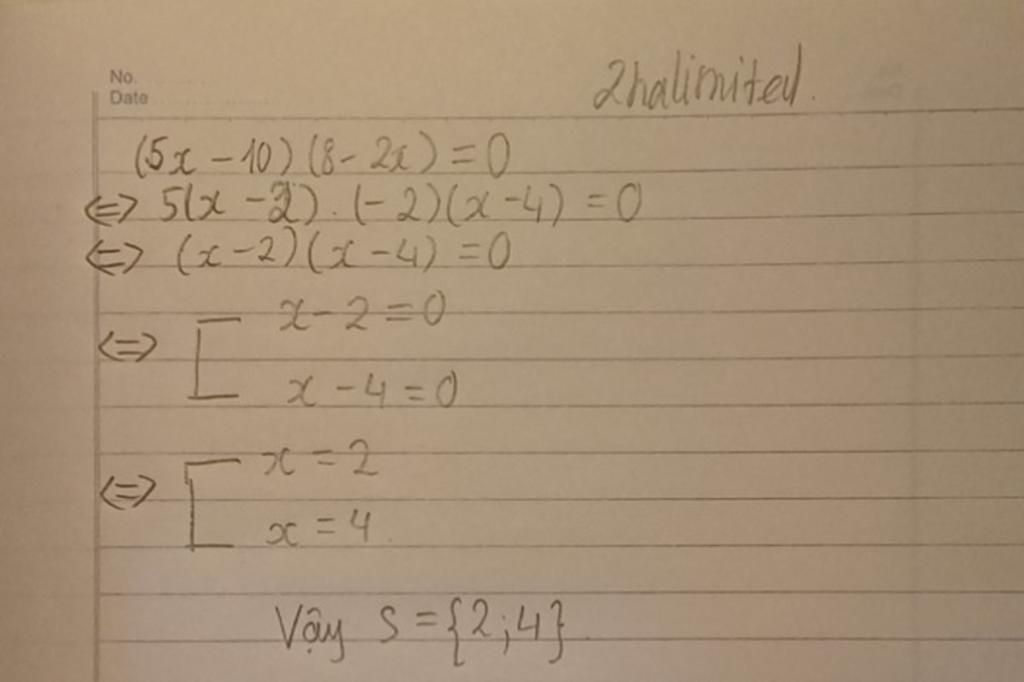 No.
Date
2halimited.
(5x - 10)(8 - 2x) = 0
<=> 5(x - 2).(-2)(x - 4) = 0
<=> (x - 2)(x - 4) = 0
<=> [ x - 2 = 0
x - 4 = 0
<=> [ x = 2
x = 4.
Vậy S = {2; 4}.